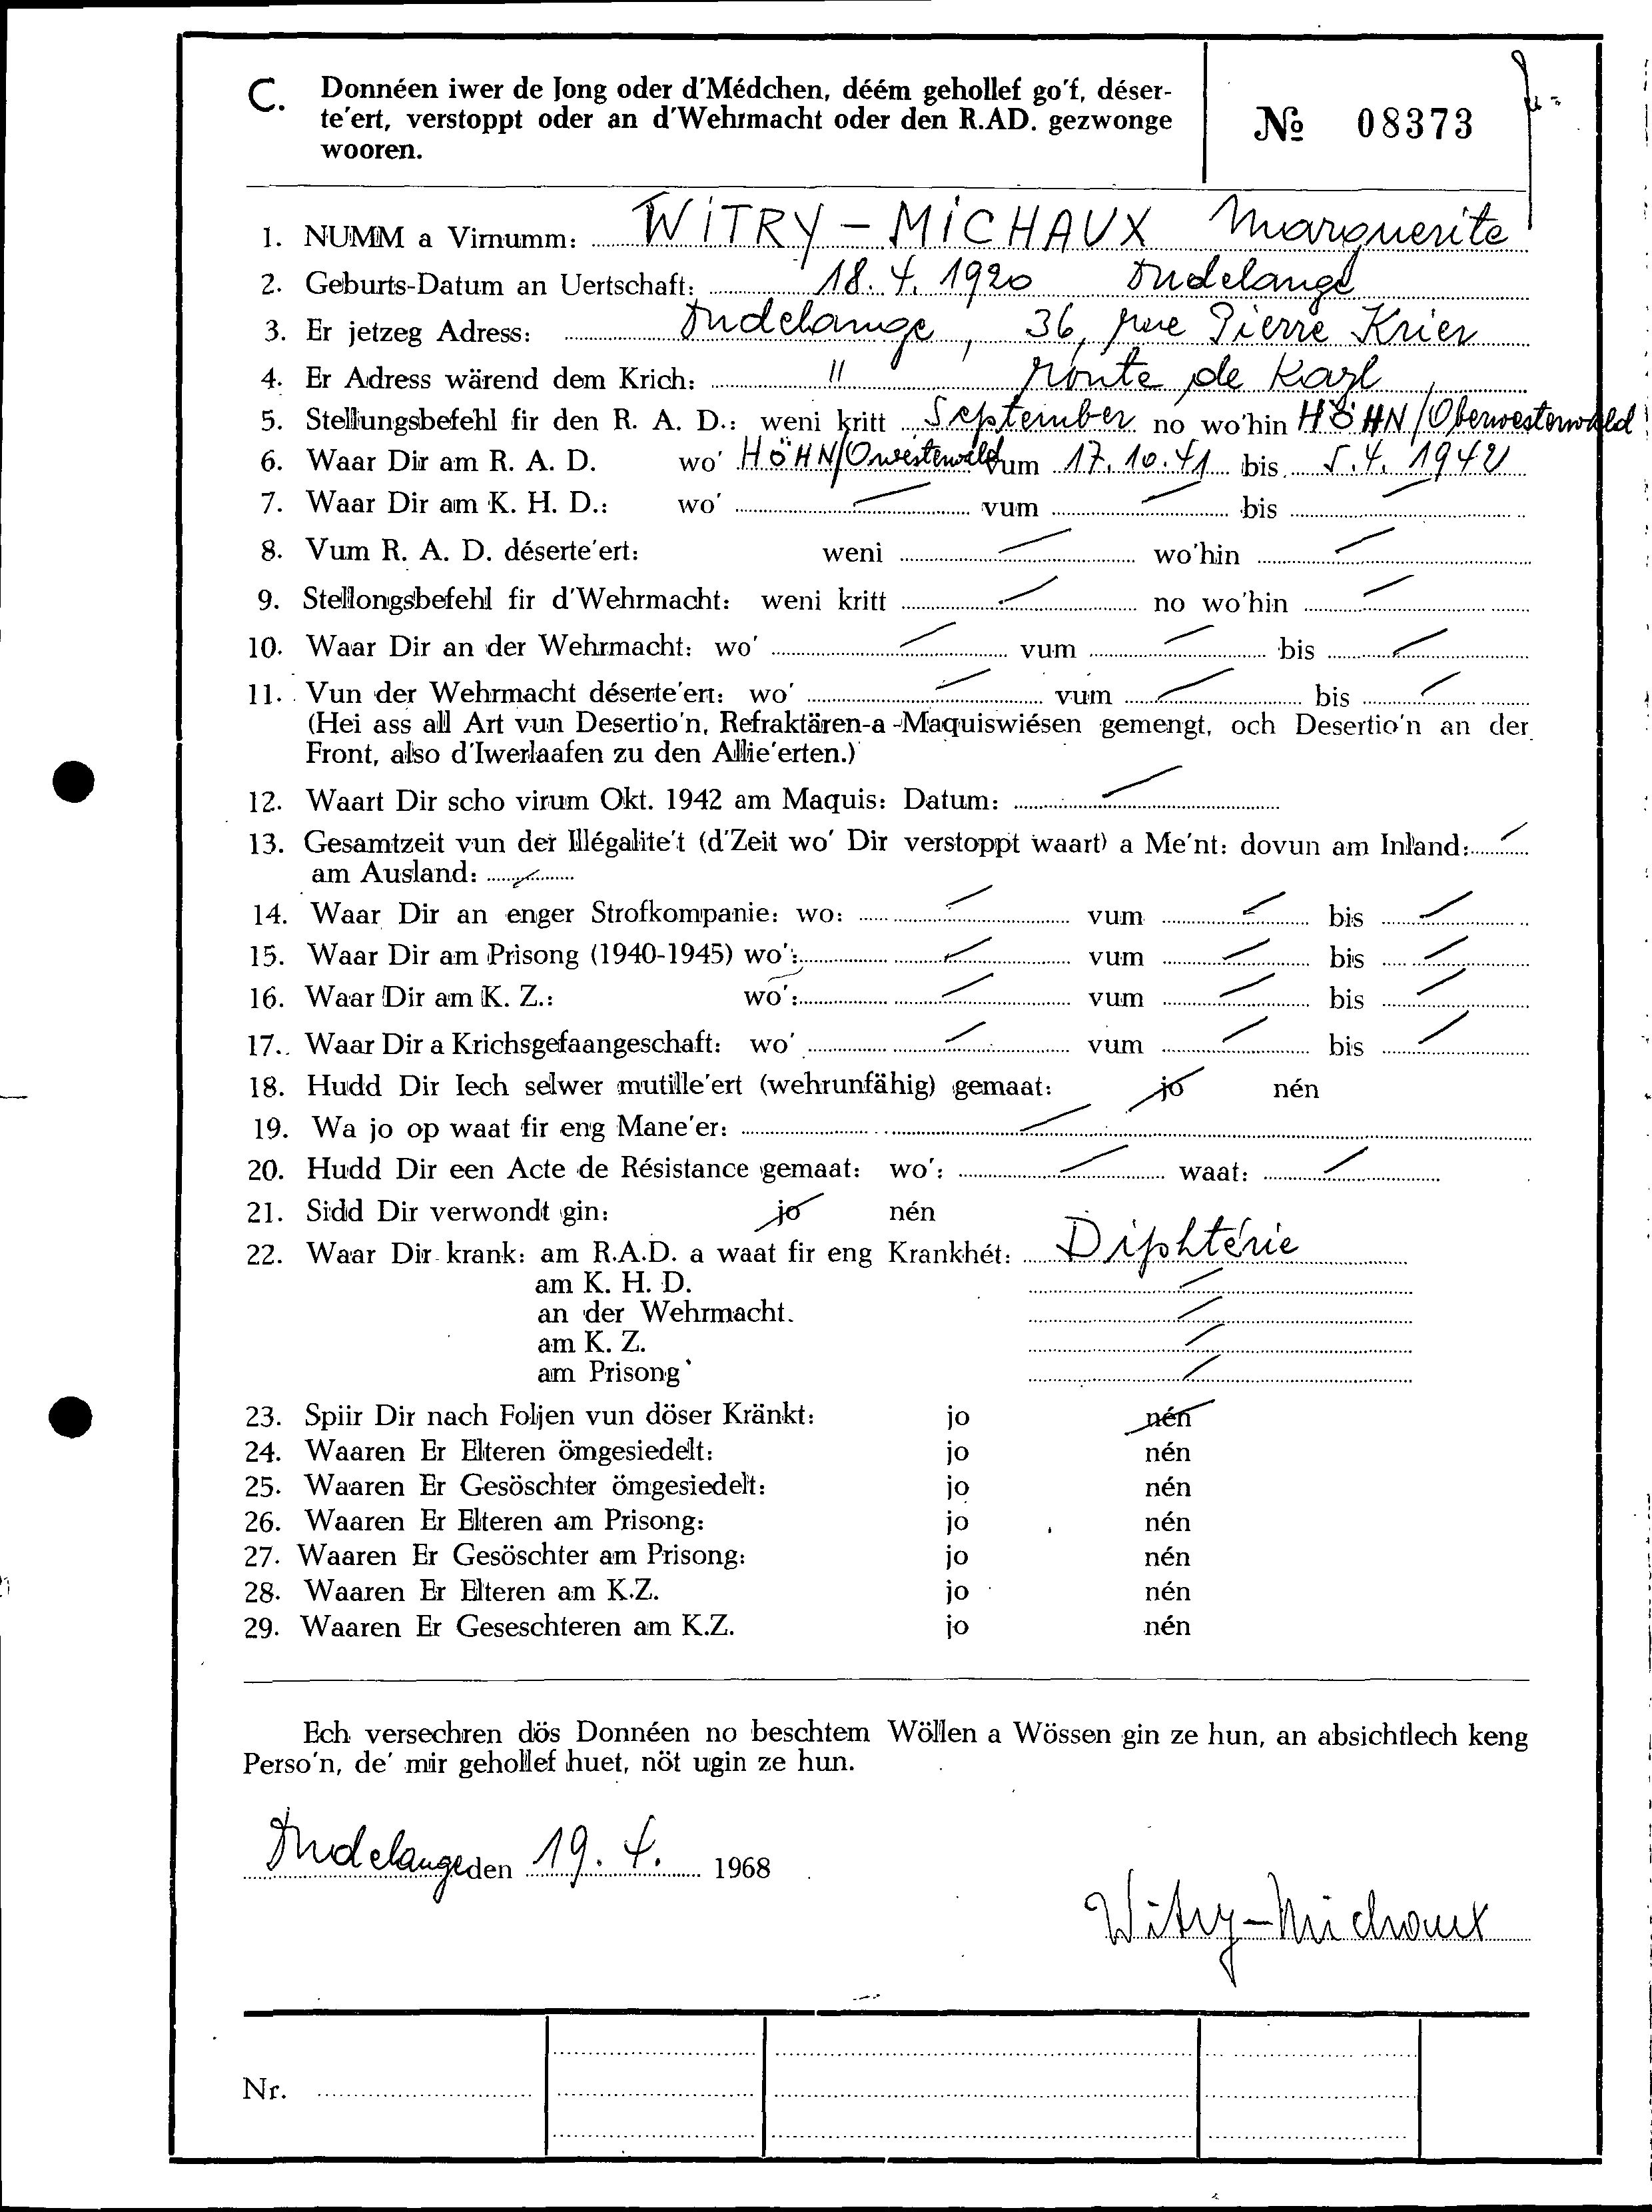 C. Donnéen iwer de Jong oder d'Médchen, déém gehollef go'f, déser-
te'ert, verstoppt oder an d'Wehrmacht oder den R.AD. gezwonge
wooren.
№ 08373
1. NUMM a Virnumm: WITRY - MICHAUX Marguerite
2. Geburts-Datum an Uertschaft: 18. 4. 1920 Dudelange
3. Er jetzeg Adress: Dudelange, 36, rue Pierre Krier
4. Er Adress wärend dem Krich: " route de Kayl
5. Stellungsbefehl fir den R. A. D.: weni kritt September no wo'hin HÖHN/Oberwesterwald
6. Waar Dir am R. A. D. wo' HÖHN/Owesterwald vum 17.10.41 bis 5.4. 1942
7. Waar Dir am K. H. D.: wo' vum bis
8. Vum R. A. D. déserte'ert: weni wo'hin
9. Stellongsbefehl fir d'Wehrmacht: weni kritt no wo'hin
10. Waar Dir an der Wehrmacht: wo' vum bis
11. Vun der Wehrmacht déserte'ert: wo' vum bis
(Hei ass all Art vun Desertio'n, Refraktären-a -Maquiswiésen gemengt, och Desertio'n an der
Front, also d'Iwerlaafen zu den Allie'erten.)
12. Waart Dir scho virum Okt. 1942 am Maquis: Datum:
13. Gesamtzeit vun der Illégalite't (d'Zeit wo' Dir verstoppt waart) a Me'nt: dovun am Inland:
am Ausland:
14. Waar Dir an enger Strofkompanie: wo: vum bis
15. Waar Dir am Prisong (1940-1945) wo': vum bis
16. Waar Dir am K. Z.: wo': vum bis
17. Waar Dir a Krichsgefaangeschaft: wo' vum bis
18. Hudd Dir Iech selwer mutille'ert (wehrunfähig) gemaat: jo nén
19. Wa jo op waat fir eng Mane'er:
20. Hudd Dir een Acte de Résistance gemaat: wo': waat:
21. Sidd Dir verwondt gin: jo nén
22. Waar Dir krank: am R.A.D. a waat fir eng Krankhét: Diphtérie
am K. H. D.
an der Wehrmacht.
am K. Z.
am Prisong
23. Spiir Dir nach Foljen vun döser Kränkt: jo nén
24. Waaren Er Elteren ömgesiedelt: jo nén
25. Waaren Er Gesöschter ömgesiedelt: jo nén
26. Waaren Er Elteren am Prisong: jo nén
27. Waaren Er Gesöschter am Prisong: jo nén
28. Waaren Er Elteren am K.Z. jo nén
29. Waaren Er Geseschteren am K.Z. jo nén
Ech versechren dös Donnéen no beschtem Wöllen a Wössen gin ze hun, an absichtlech keng
Perso'n, de' mir gehollef huet, nöt ugin ze hun.
Dudelange den 19. 4. 1968
Witry-Michaux
Nr.